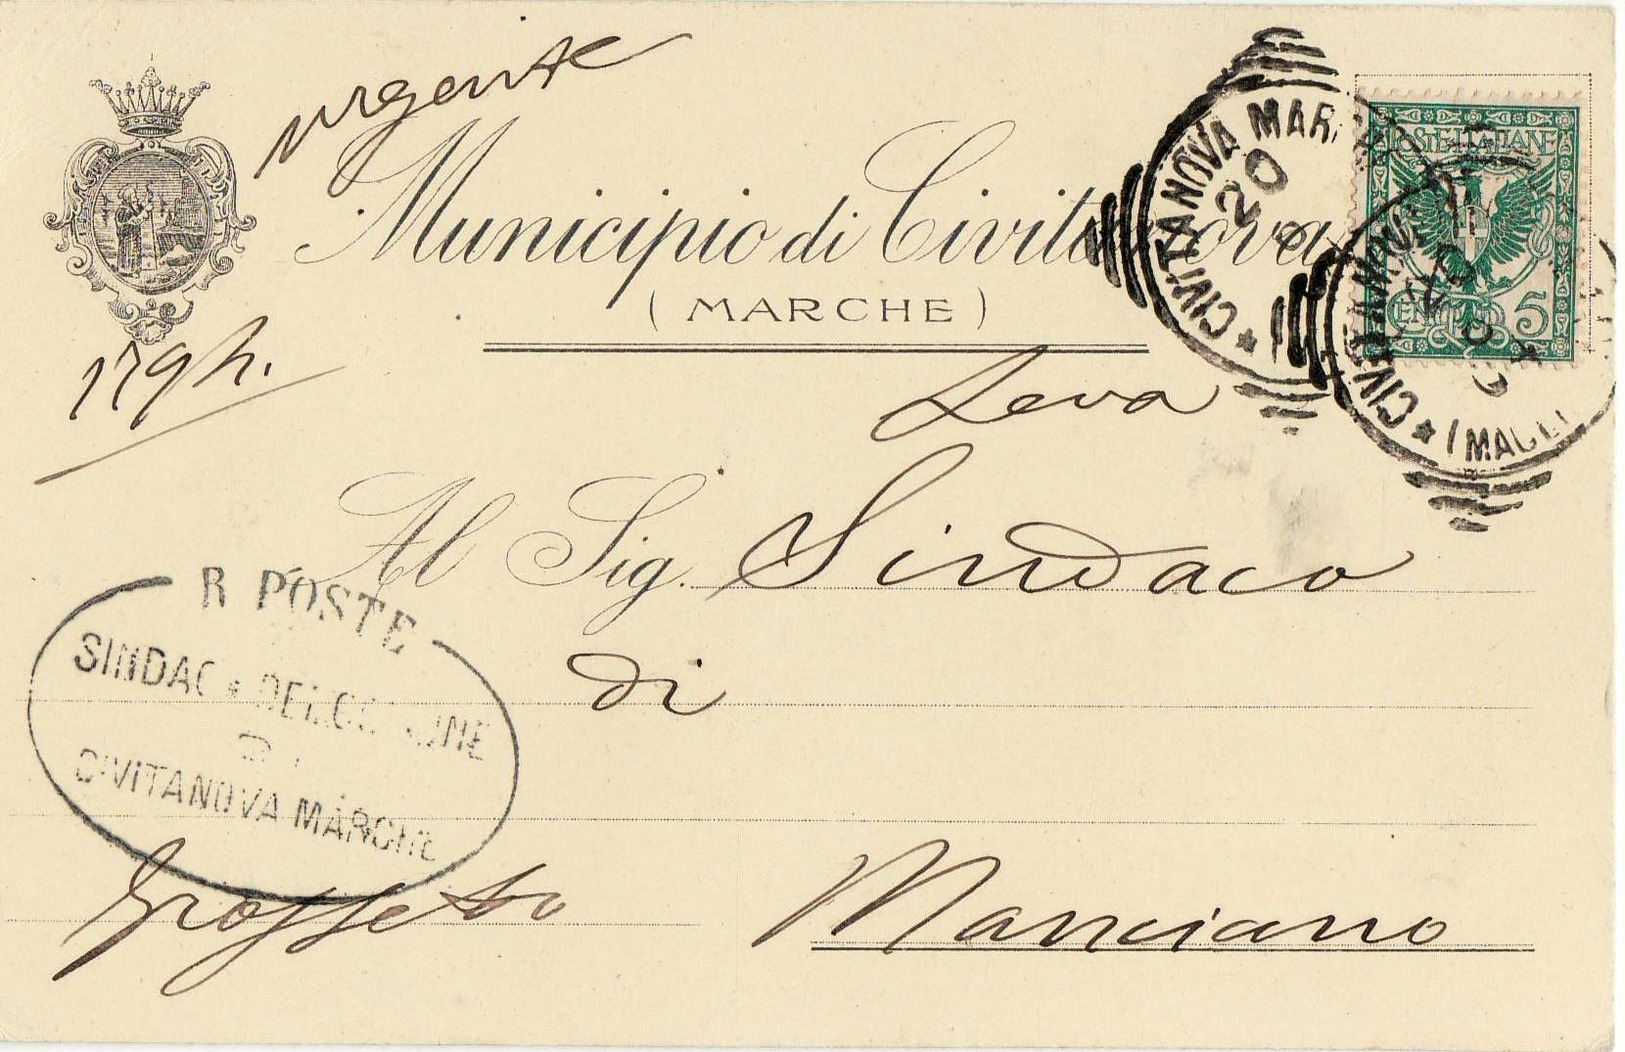 Urgente
Municipio di Civitanova
( MARCHE )
CIVITANOVA MARCHE
20
POSTE ITALIANE
5
CIVITANOVA
20
Leva
Al Sig. Sindaco
di
R POSTE
SINDACO DEL COMUNE
DI
CIVITANOVA MARCHE
Grosseto
Manciano